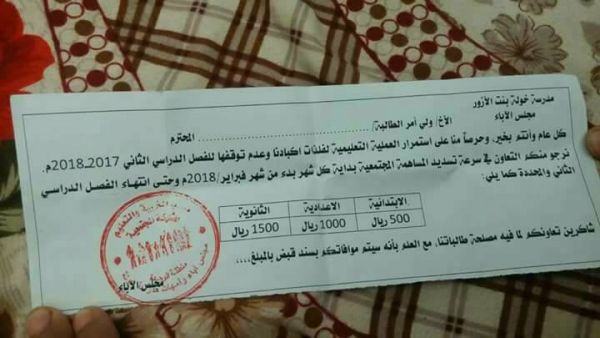 مدرسة خولة بنت الأزور
مجلس الآباء
الأخ/ ولي أمر الطالبة/ ........................................ المحترم
كل عام وأنتم بخير، وحرصاً منا على استمرار العملية التعليمية لفلذات اكبادنا وعدم توقفها للفصل الدراسي الثاني 2017ـ2018م.
نرجو منكم التعاون في سرعة تسديد المساهمة المجتمعية بداية كل شهر بدء من شهر فبراير/2018م وحتى انتهاء الفصل الدراسي
الثاني والمحددة كما يلي:
الابتدائية الاعدادية الثانوية
500 ريال 1000 ريال 1500 ريال
شاكرين تعاونكم لما فيه مصلحة طالباتنا، مع العلم بأنه سيتم موافاتكم بسند قبض بالمبلغ....
مجلس الآباء
التربية والتعليم